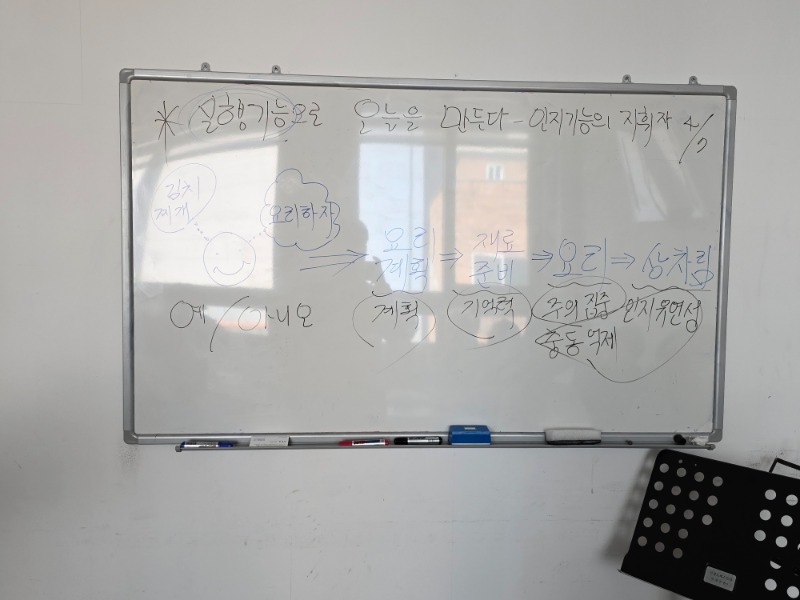 * 실행기능으로 오늘을 만든다 - 인지기능의 지휘자 4/7
김치
찌개
요리하자
요리
계획
⇒ 재료
준비
⇒ 요리 ⇒ 상차림
예/아니오
계획
기억력
주의 집중
충동 억제
인지유연성